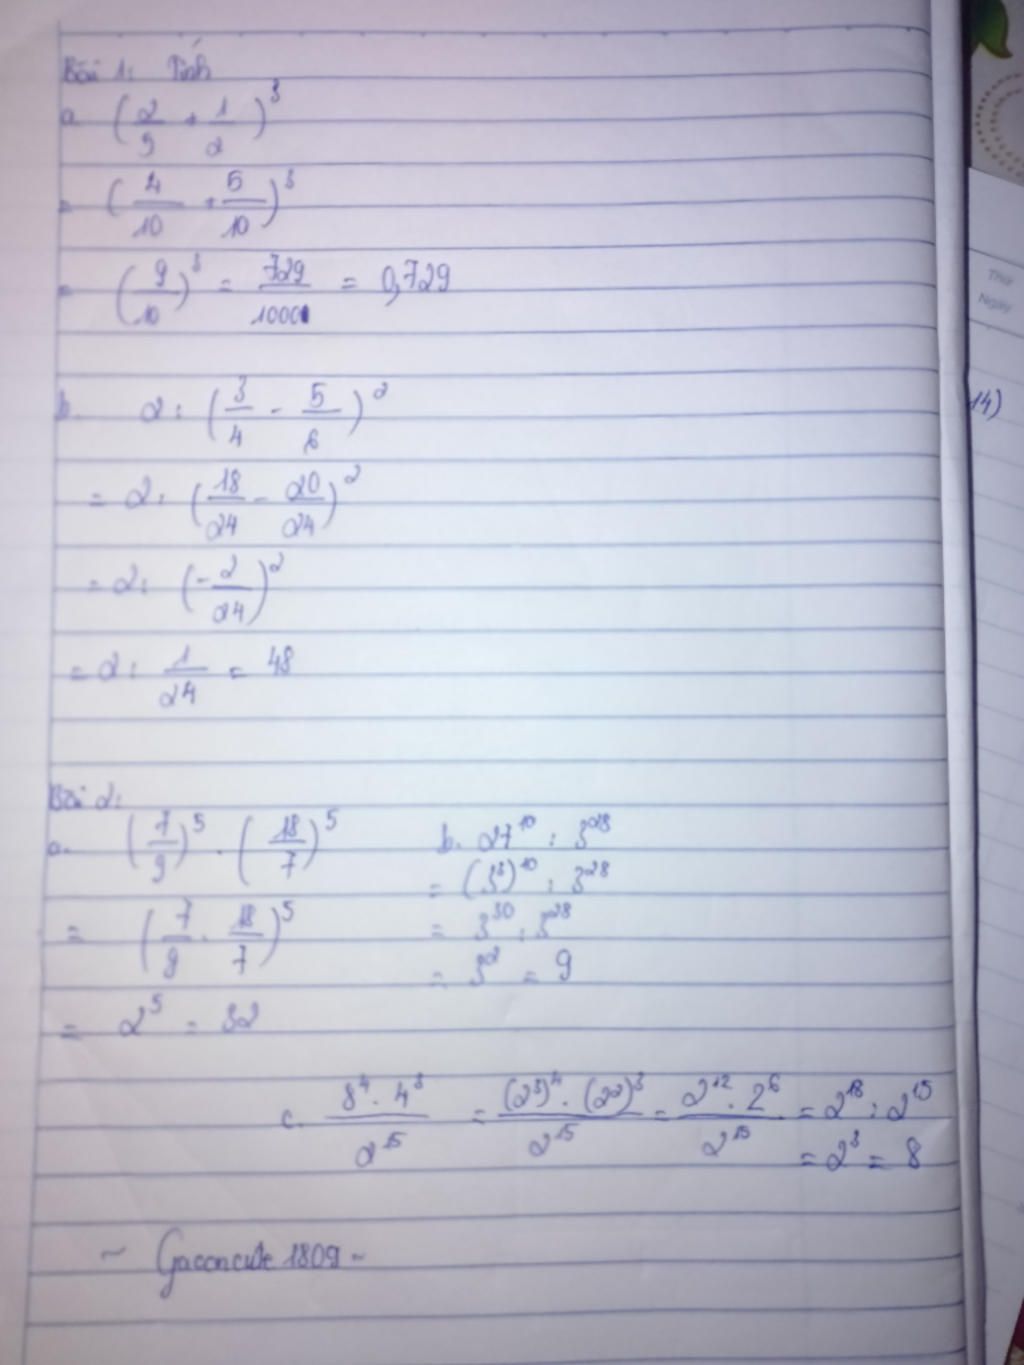 Bài 1: Tính
a. (2/5 + 1/2)^3
= (4/10 + 5/10)^3
= (9/10)^3 = 729/1000 = 0,729
b. 2 : (3/4 - 5/6)^2
= 2 : (18/24 - 20/24)^2
= 2 : (-2/24)^2
= 2 : 1/24 = 48
Bài 2:
a. (7/9)^5 . (18/7)^5
= (7/9 . 18/7)^5
= 2^5 = 32
b. 27^10 : 3^28
= (3^3)^10 : 3^28
= 3^30 : 3^28
= 3^2 = 9
c. 8^4 . 4^3 / 2^15 = (2^3)^4 . (2^2)^3 / 2^15 = 2^12 . 2^6 / 2^15 = 2^18 : 2^15
= 2^3 = 8
~ Gaconcute 1809 ~
14)
Thứ
Ngày